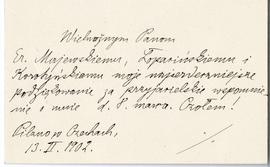 Wielmożnym Panom
Er. Majewskiemu, Łopacińskiemu i
Korotyńskiemu moje najserdeczniejsze
podziękowanie za przyjacielskie wspomnie-
nie o mnie d. 8. marca. Czołem!
Pilzno w Czechach,
13. II. 1902.